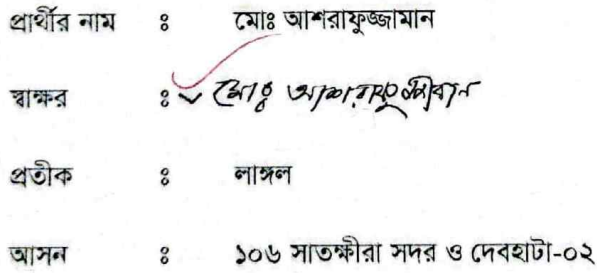 প্রার্থীর নাম : মোঃ আশরাফুজ্জামান
স্বাক্ষর : মোঃ আশরাফুজ্জামান
প্রতীক : লাঙ্গল
আসন : ১০৬ সাতক্ষীরা সদর ও দেবহাটা-০২